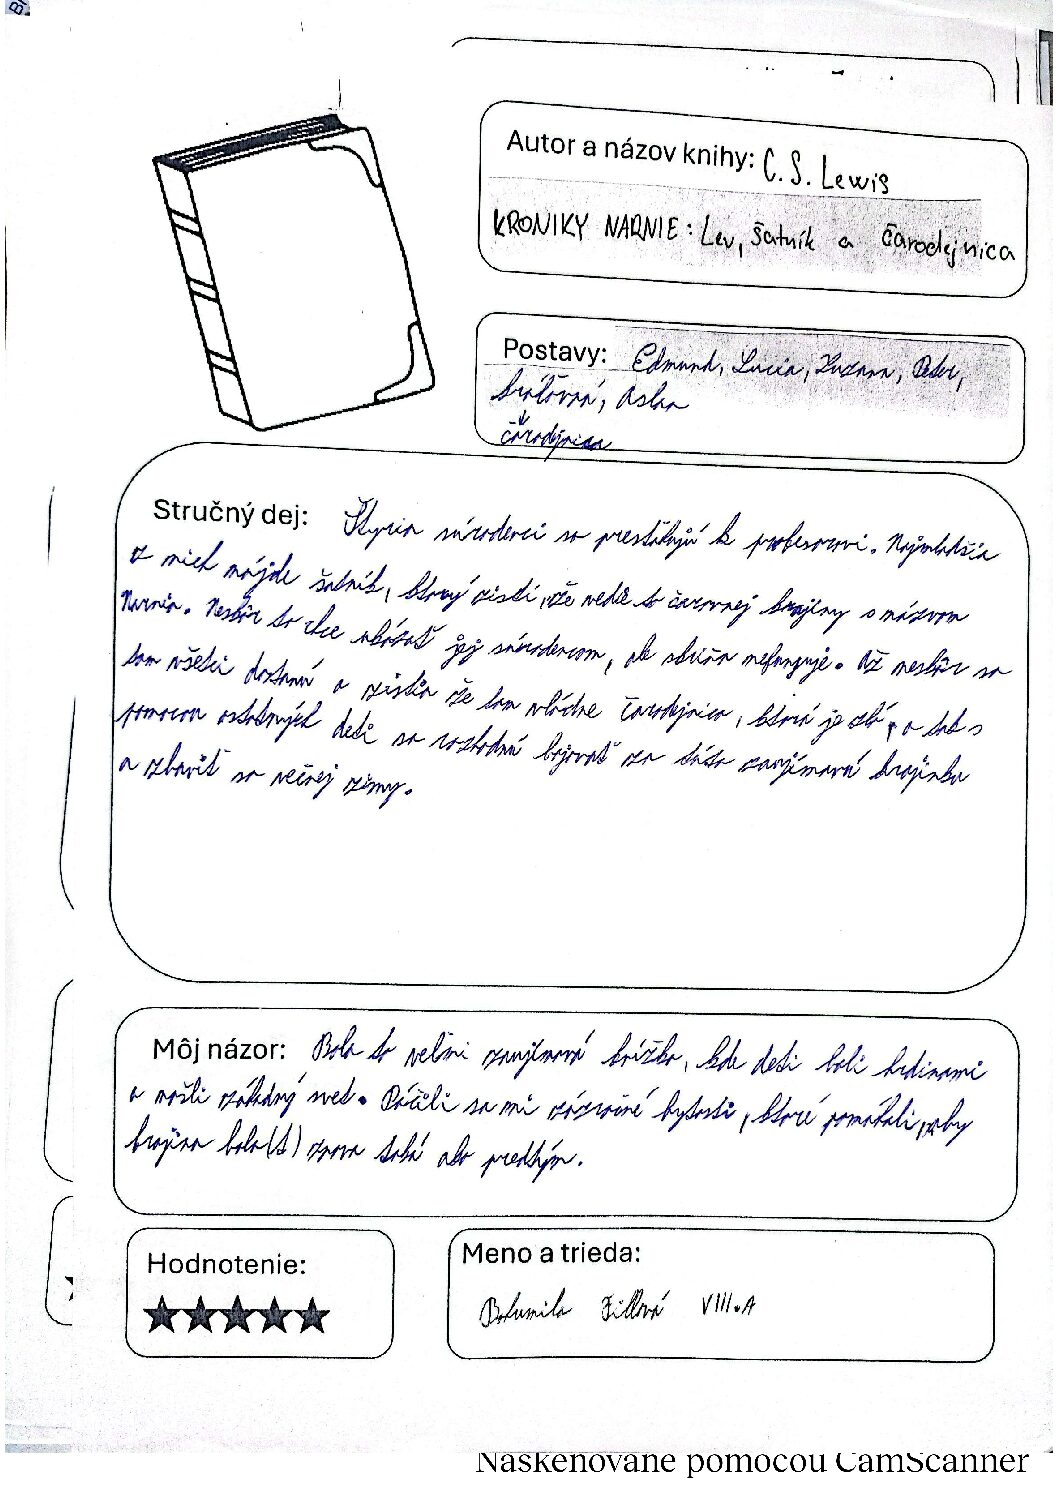 Autor a názov knihy: C. S. Lewis
KRONIKY NARNIE: Lev, šatník a čarodejnica
Postavy: Edmund, Lucia, Zuzana, Peter,
kráľovná, Aslan
čarodejnica
Stručný dej: Štyria súrodenci sa presťahujú k profesorovi. Najmladšia
z nich nájde šatník, ktorý zistí, že vedie to čarovnej krajiny s názvom
Narnia. Neskôr to chce ukázať jej súrodencom, ale skriňa nefunguje. Až neskôr sa
tam všetci dostanú a zistia že tam vládne čarodejnica, ktorá je zlá, a tak s
pomocou ostatných detí sa rozhodnú bojovať za túto zaujímavú krajinku
a zbaviť sa večnej zimy.
Môj názor: Bola to veľmi zaujímavá knižka, kde deti boli hrdinami
a našli záhadný svet. Páčili sa mi zázračné bytosti, ktoré pomáhali, aby
krajina bola(t) znova taká ako predtým.
Hodnotenie:
Meno a trieda:
Bohumila VIII.A
Naskenované pomocou CamScanner